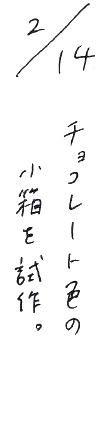 2/14
チョコレート色の
小箱を試作。